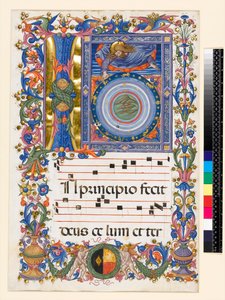 In principio fecit
deus ce lum et ter